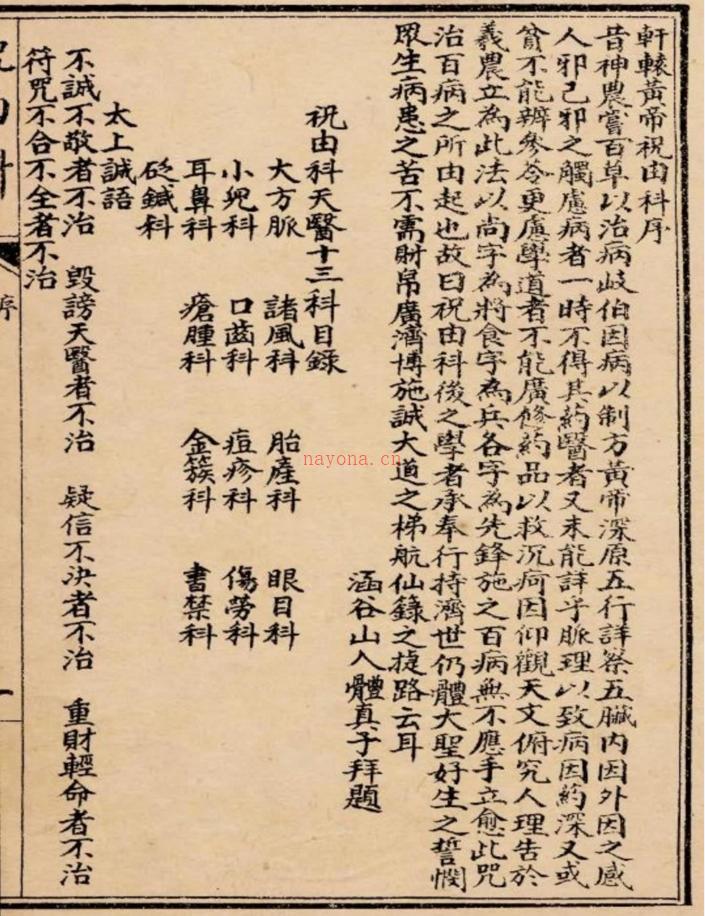 軒轅黃帝祝由科序
昔神農嘗百草以治病岐伯因病以制方黃帝深原五行詳察五臟內因外因之感
人邪己邪之觸慮病者一時不得其药醫者又未能詳乎脈理以致病因药深又或
貧不能辦参苓更慮學道者不能廣修药品以救沉疴因仰觀天文俯究人理告於
義農立為此法以尚字為將食字為兵各字為先鋒施之百病無不應手立愈此咒
治百病之所由起也故曰祝由科後之學者承奉行持濟世仍體大聖好生之誓憫
眾生病患之苦不需財帛廣濟博施誠大道之梯航仙籙之捷路云耳
涵谷山人體真子拜題
祝由科天醫十三科目錄
大方脈 諸風科 胎產科 眼目科
小兒科 口齒科 痘疹科 傷勞科
耳鼻科 瘡腫科 金簇科 書禁科
砭鍼科
太上誠語
不誠不敬者不治 毀謗天醫者不治 疑信不決者不治 重財輕命者不治
符咒不合不全者不治
序
一
nayona.cn